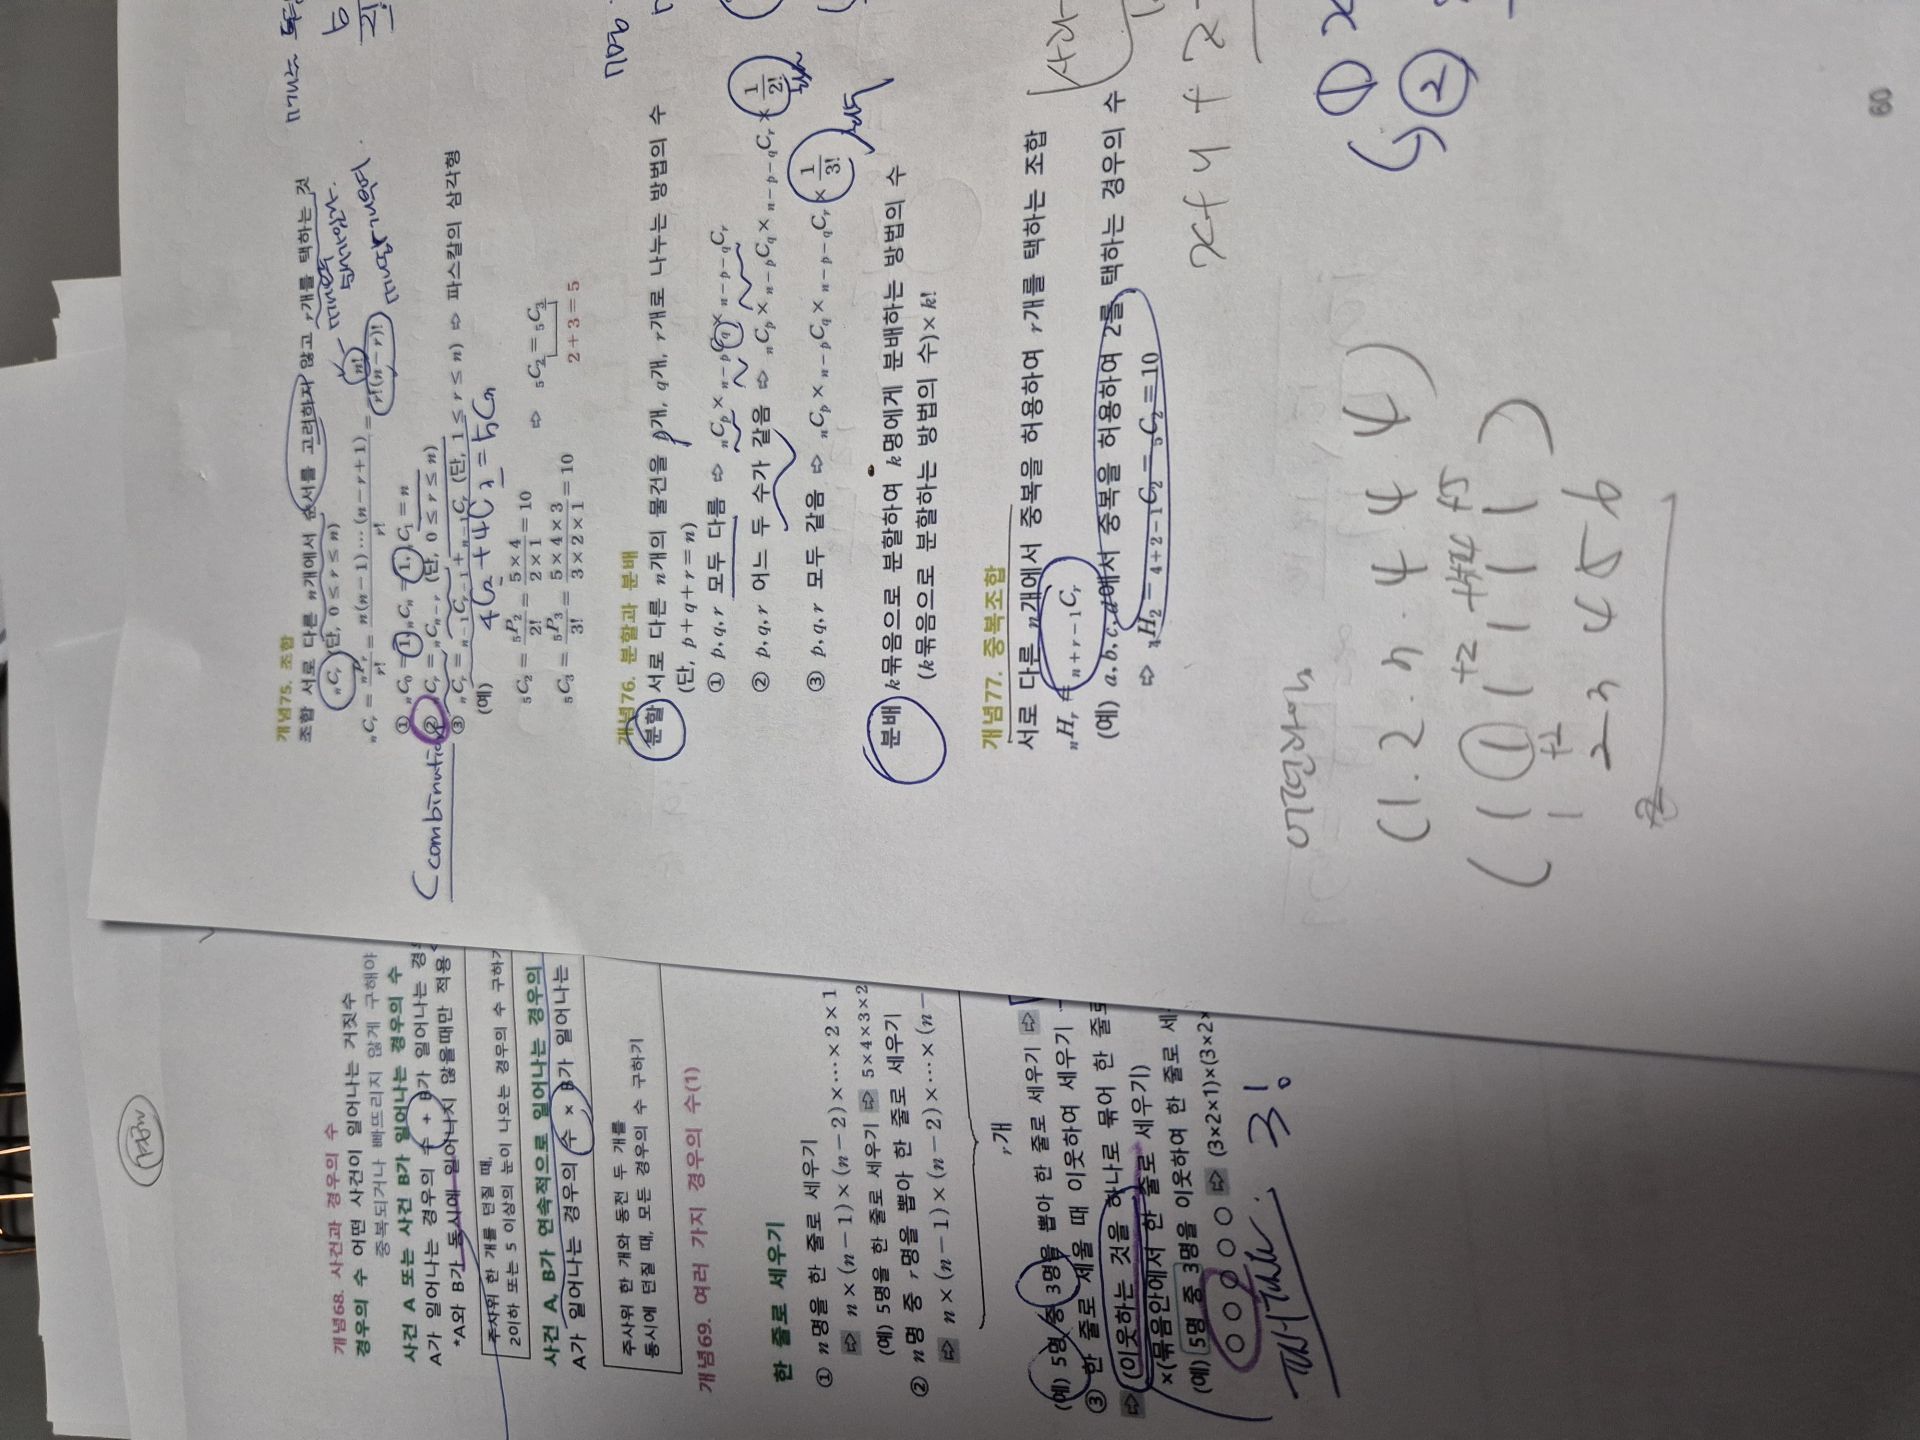 개념75. 조합
조합 서로 다른 n개에서 순서를 고려하지 않고 r개를 택하는 것
nCr (단, 0 ≤ r ≤ n)
nCr = nPr/r! = n(n−1)⋯(n−r+1)/r! = n!/r!(n−r)!
① nC0 = 1, nCn = 1, nC1 = n
② nCr = nCn−r (단, 0 ≤ r ≤ n)
③ nCr = n−1Cr−1 + n−1Cr (단, 1 ≤ r ≤ n) ⇨ 파스칼의 삼각형
(예)
5C2 = 5P2/2! = 5×4/2×1 = 10
⇨ 5C2 = 5C3
5C3 = 5P3/3! = 5×4×3/3×2×1 = 10
2+3=5
Combination
개념76. 분할과 분배
분할 서로 다른 n개의 물건을 p개, q개, r개로 나누는 방법의 수
(단, p+q+r=n)
① p, q, r 모두 다름 ⇨ nCp × n−pCq × n−p−qCr
② p, q, r 어느 두 수가 같음 ⇨ nCp × n−pCq × n−p−qCr × 1/2!
③ p, q, r 모두 같음 ⇨ nCp × n−pCq × n−p−qCr × 1/3!
분배 k묶음으로 분할하여 k명에게 분배하는 방법의 수
(k묶음으로 분할하는 방법의 수)×k!
개념77. 중복조합
서로 다른 n개에서 중복을 허용하여 r개를 택하는 조합
nHr = n+r−1Cr
(예) a, b, c, d에서 중복을 허용하여 2를 택하는 경우의 수
⇨ 4H2 = 4+2−1C2 = 5C2 = 10
x+y+z
①
②
(1. 2. 3. 4 4 4)
2 3 4 5 6
60
개념68. 사건과 경우의 수
경우의 수 어떤 사건이 일어나는 가짓수
중복되거나 빠뜨리지 않게 구해야
사건 A 또는 사건 B가 일어나는 경우의 수
A가 일어나는 경우의 수 + B가 일어나는 경
*A와 B가 동시에 일어나지 않을때만 적용
주사위 한 개를 던질 때,
2이하 또는 5 이상의 눈이 나오는 경우의 수 구하기
사건 A, B가 연속적으로 일어나는 경우의
A가 일어나는 경우의 수 × B가 일어나는
주사위 한 개와 동전 두 개를
동시에 던질 때, 모든 경우의 수 구하기
개념69. 여러 가지 경우의 수(1)
한 줄로 세우기
① n명을 한 줄로 세우기
⇨ n×(n−1)×(n−2)×⋯×2×1
(예) 5명을 한 줄로 세우기 ⇨ 5×4×3×2
② n명 중 r명을 뽑아 한 줄로 세우기
⇨ n×(n−1)×(n−2)×⋯×(n−
r개
(예) 5명 중 3명을 뽑아 한 줄로 세우기 ⇨
③ 한 줄로 세울 때 이웃하여 세우기
⇨ (이웃하는 것을 하나로 묶어 한 줄로
×(묶음안에서 한 줄로 세우기)
(예) 5명 중 3명을 이웃하여 한 줄로 세
⇨ (3×2×1)×(3×2×
3!